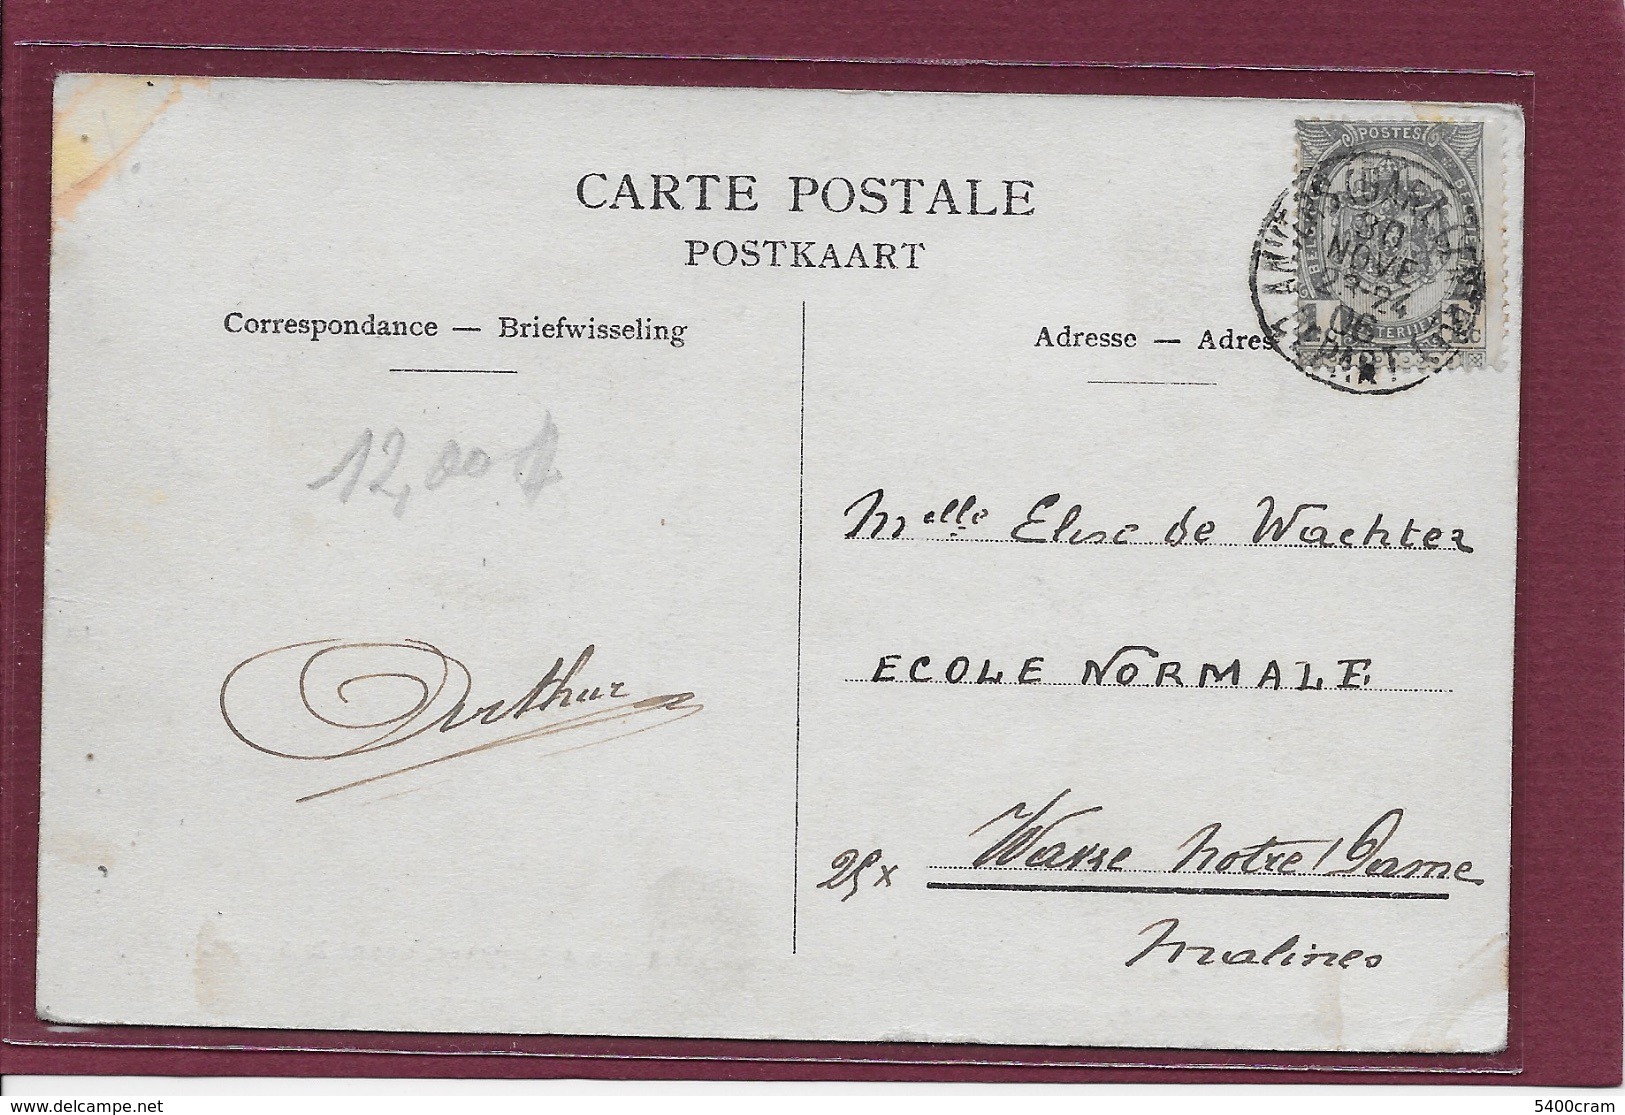 CARTE POSTALE
POSTKAART
POSTES
Correspondance — Briefwisseling
Adresse — Adres
30
NOVE
06
12,00
Melle Elise de Wachter
ECOLE NORMALE
Arthur
Wavre Notre Dame
25x
Malines
www.delcampe.net
5400cram